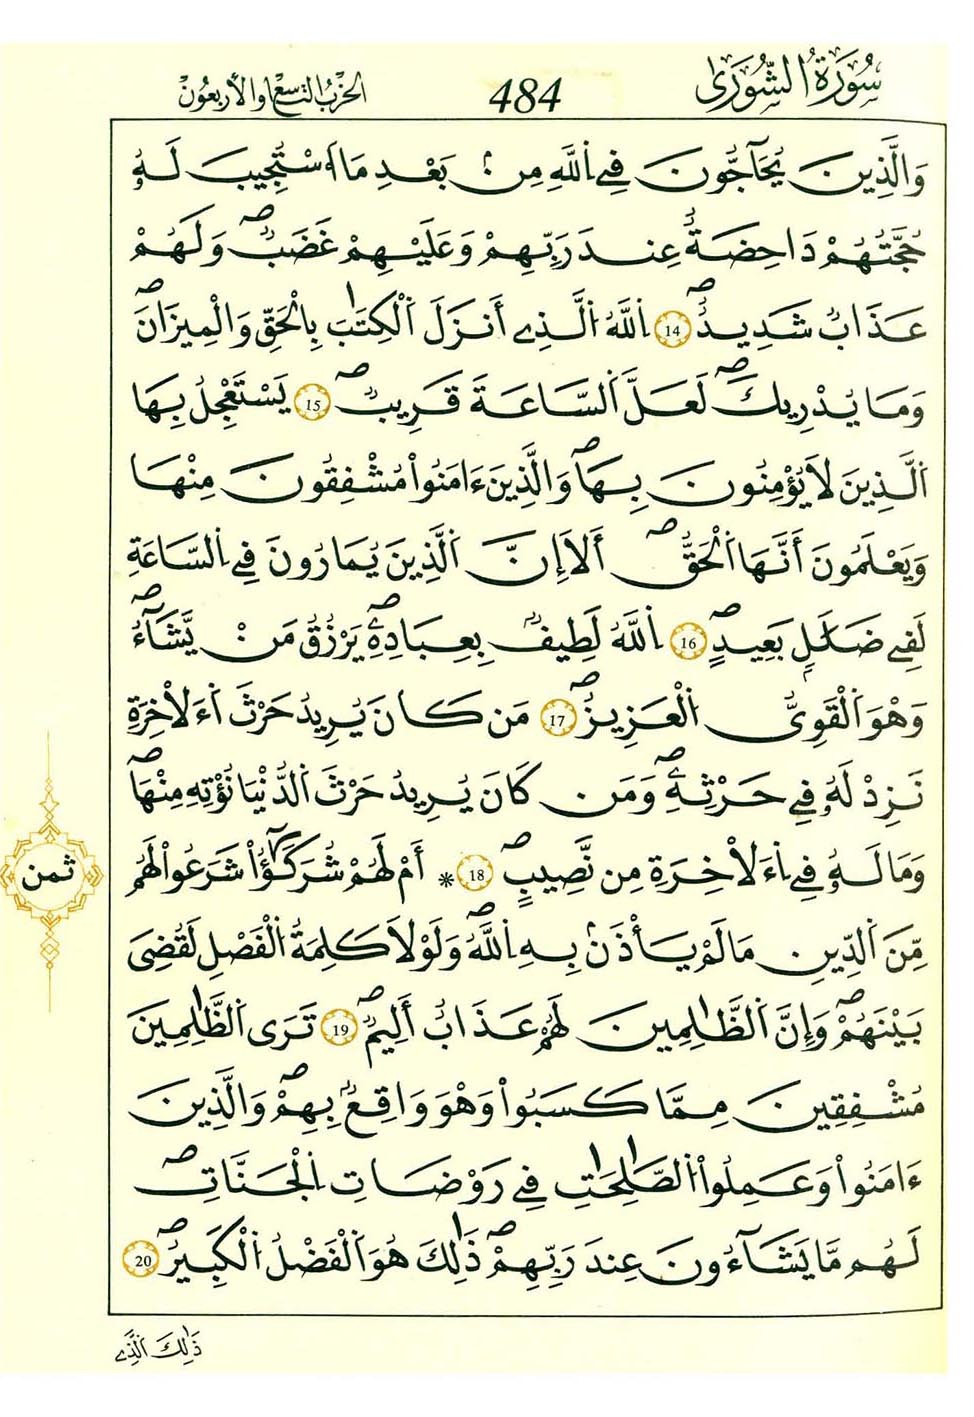 سُورَةُ الشُّورَىٰ 484 الحِزْبُ التَّاسِعُ وَالأَرْبَعُونَ
وَالَّذِينَ يُحَآجُّونَ فِے اِ۬للَّهِ مِنۢ بَعْدِ مَا اَ۟سْتُجِيبَ لَهُۥ
حُجَّتُهُمْ دَاحِضَةٌ عِندَ رَبِّهِمْ وَعَلَيْهِمْ غَضَبٞۖ وَلَهُمْ
عَذَابٞ شَدِيدٌۖ 14 اِ۬للَّهُ اُ۬لَّذِے أَنزَلَ اَ۬لْكِتَٰبَ بِالْحَقِّ وَالْمِيزَانَۖ
وَمَا يُدْرِيكَۖ لَعَلَّ اَ۬لسَّاعَةَ قَرِيبٞۖ 15 يَسْتَعْجِلُ بِهَا
اَ۬لَّذِينَ لَا يُؤْمِنُونَ بِهَاۖ وَالَّذِينَ ءَامَنُواْ مُشْفِقُونَ مِنْهَا
وَيَعْلَمُونَ أَنَّهَا اَ۬لْحَقُّۖ أَلَا إِنَّ اَ۬لَّذِينَ يُمَارُونَ فِے اِ۬لسَّاعَةِ
لَفِے ضَلَٰلِۢ بَعِيدٍۖ 16 اِ۬للَّهُ لَطِيفُۢ بِعِبَادِهِۦۖ يَرْزُقُ مَنْ يَّشَآءُۖ
وَهْوَ اَ۬لْقَوِىُّ اُ۬لْعَزِيزُۖ 17 مَن كَانَ يُرِيدُ حَرْثَ اَ۬ءَلَاخِرَةِ
نَزِدْ لَهُۥ فِے حَرْثِهِۦۖ وَمَن كَانَ يُرِيدُ حَرْثَ اَ۬لدُّنْيَا نُؤْتِهِۦ مِنْهَاۖ
وَمَا لَهُۥ فِے اِ۬ءَلَاخِرَةِ مِن نَّصِيبٍۖ 18 * أَمْ لَهُمْ شُرَكَٰٓؤُاْ شَرَعُواْ لَهُم
مِّنَ اَ۬لدِّينِ مَا لَمْ يَأْذَنۢ بِهِ اِ۬للَّهُۖ وَلَوْلَا كَلِمَةُ اُ۬لْفَصْلِ لَقُضِىَ
بَيْنَهُمْۖ وَإِنَّ اَ۬لظَّٰلِمِينَ لَهُمْ عَذَابٌ أَلِيمٞۖ 19 تَرَى اَ۬لظَّٰلِمِينَ
مُشْفِقِينَ مِمَّا كَسَبُواْ وَهْوَ وَاقِعُۢ بِهِمْۖ وَالَّذِينَ
ءَامَنُواْ وَعَمِلُواْ اُ۬لصَّٰلِحَٰتِ فِے رَوْضَاتِ اِ۬لْجَنَّاتِۖ
لَهُم مَّا يَشَآءُونَ عِندَ رَبِّهِمْۖ ذَٰلِكَ هُوَ اَ۬لْفَضْلُ اُ۬لْكَبِيرُۖ 20
ثمن
ذَٰلِكَ اَ۬لَّذِے